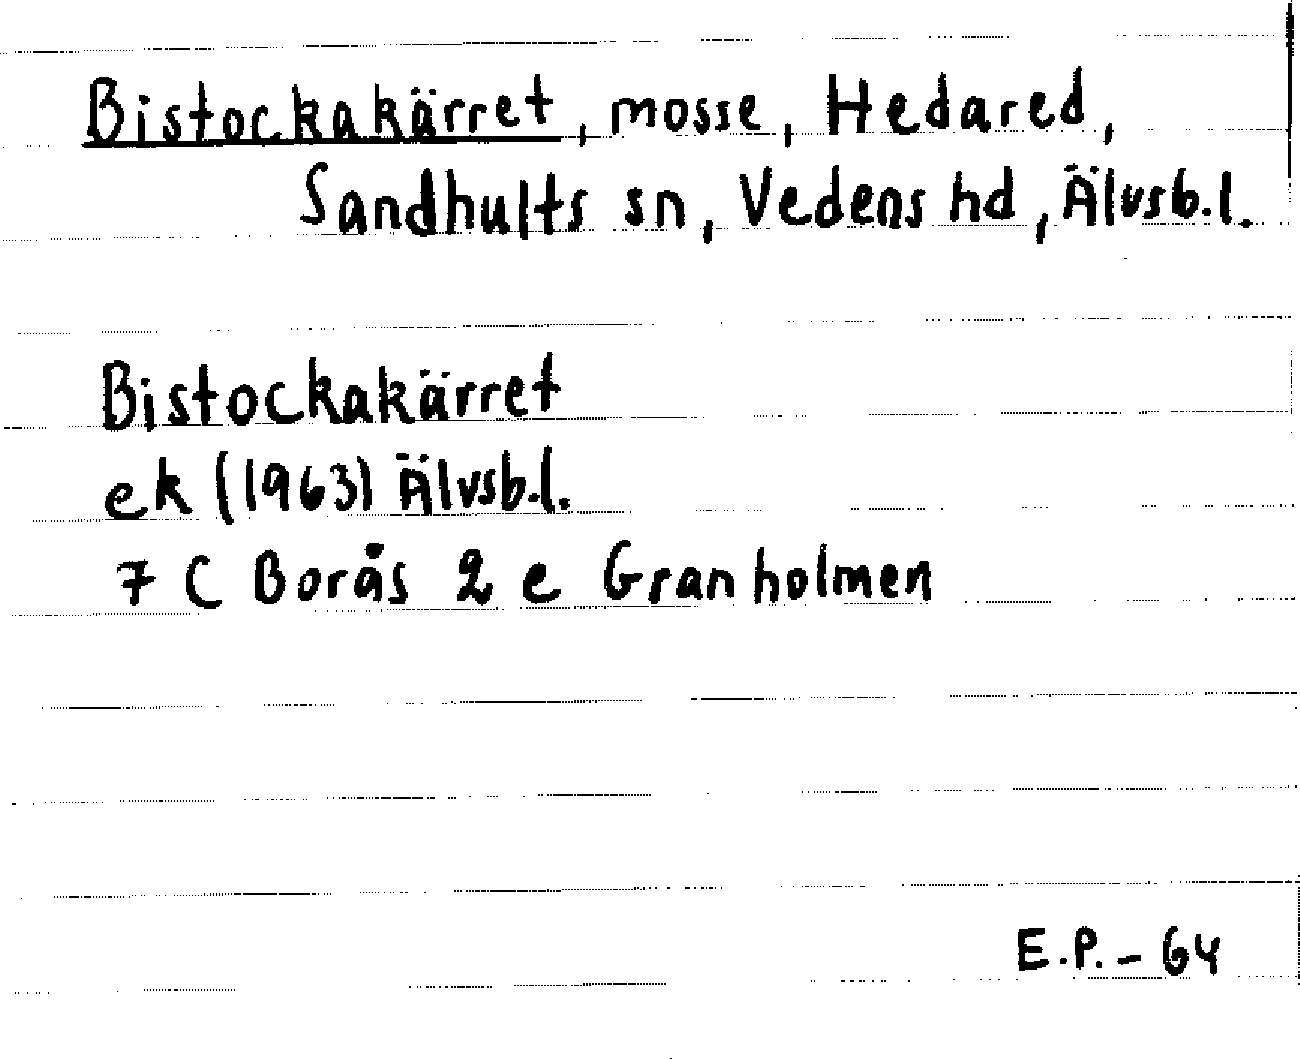 Bistockakärret, mosse, Hedared,
Sandhults sn, Vedens hd, Älvsb.l.
Bistockakärret
ek (1963) Älvsb.l.
7 C Borås 2 e Granholmen
E.P. - 64